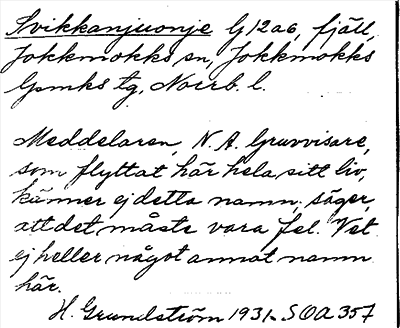 Svikkanjuonje G12a6, fjäll,
Jokkmokks sn, Jokkmokks
lpmks tg, Norrb. l.
Meddelaren, N. A. Gruvvisare,
som flyttat här hela sitt liv,
känner ej detta namn, säger,
att det måste vara fel. Vet
ej heller något annat namn
här.
H. Grundström 1931. SOA 357